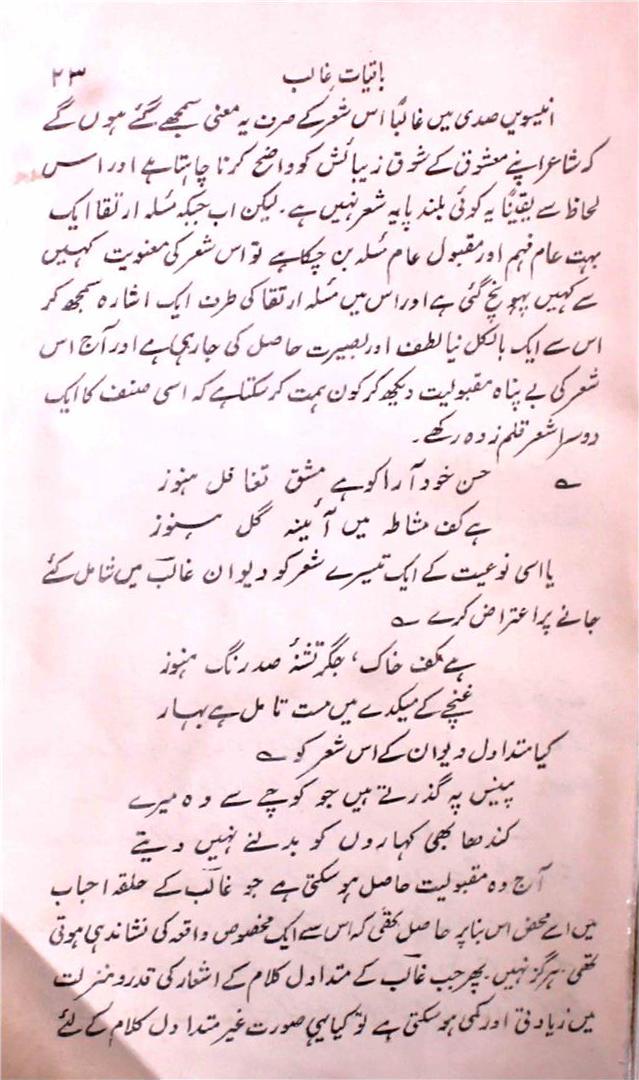 باقیات غالب ۲۳
انیسویں صدی میں غالباً اس شعر کے صرف یہ معنی سمجھے گئے ہوں گے
کہ شاعر اپنے معشوق کے شوق زیبائش کو واضح کرنا چاہتا ہے اور اس
لحاظ سے یقیناً یہ کوئی بلند پایہ شعر نہیں ہے۔ لیکن اب جبکہ مسٔلہ ارتقا ایک
بہت عام فہم اور مقبول عام مسٔلہ بن چکا ہے تو اس شعر کی معنویت کہیں
سے کہیں پہونچ گئی ہے اور اس میں مسٔلہ ارتقا کی طرف ایک اشارہ سمجھ کر
اس سے ایک بالکل نیا لطف اور بصیرت حاصل کی جا رہی ہے اور آج اس
شعر کی بے پناہ مقبولیت دیکھ کر کون ہمت کر سکتا ہے کہ اسی صنف کا ایک
دوسرا شعر قلم زدہ رکھے۔
؎ حسن خود آرا کو ہے مشق تغافل ہنوز
ہے کف مشاطہ میں آئینہ گل ہنوز
یا اسی نوعیت کے ایک تیسرے شعر کو دیوان غالبؔ میں شامل کئے
جانے پر اعتراض کرے ؎
ہے کف خاک، جگر تشنۂ صد رنگ ہنوز
غنچے کے میکدے میں مست تامل ہے بہار
کیا متداول دیوان کے اس شعر کو ؎
پینس پہ گذرتے ہیں جو کوچے سے وہ میرے
کندھا بھی کہاروں کو بدلنے نہیں دیتے
آج وہ مقبولیت حاصل ہو سکتی ہے جو غالبؔ کے حلقہ احباب
میں اسے محض اس بنا پر حاصل تھی کہ اس سے ایک مخصوص واقعہ کی نشاندہی ہوتی
تھی۔ ہرگز نہیں۔ پھر جب غالبؔ کے متداول کلام کے اشعار کی قدر و منزلت
میں زیادتی اور کمی ہو سکتی ہے تو کیا یہی صورت غیر متداول کلام کے لئے